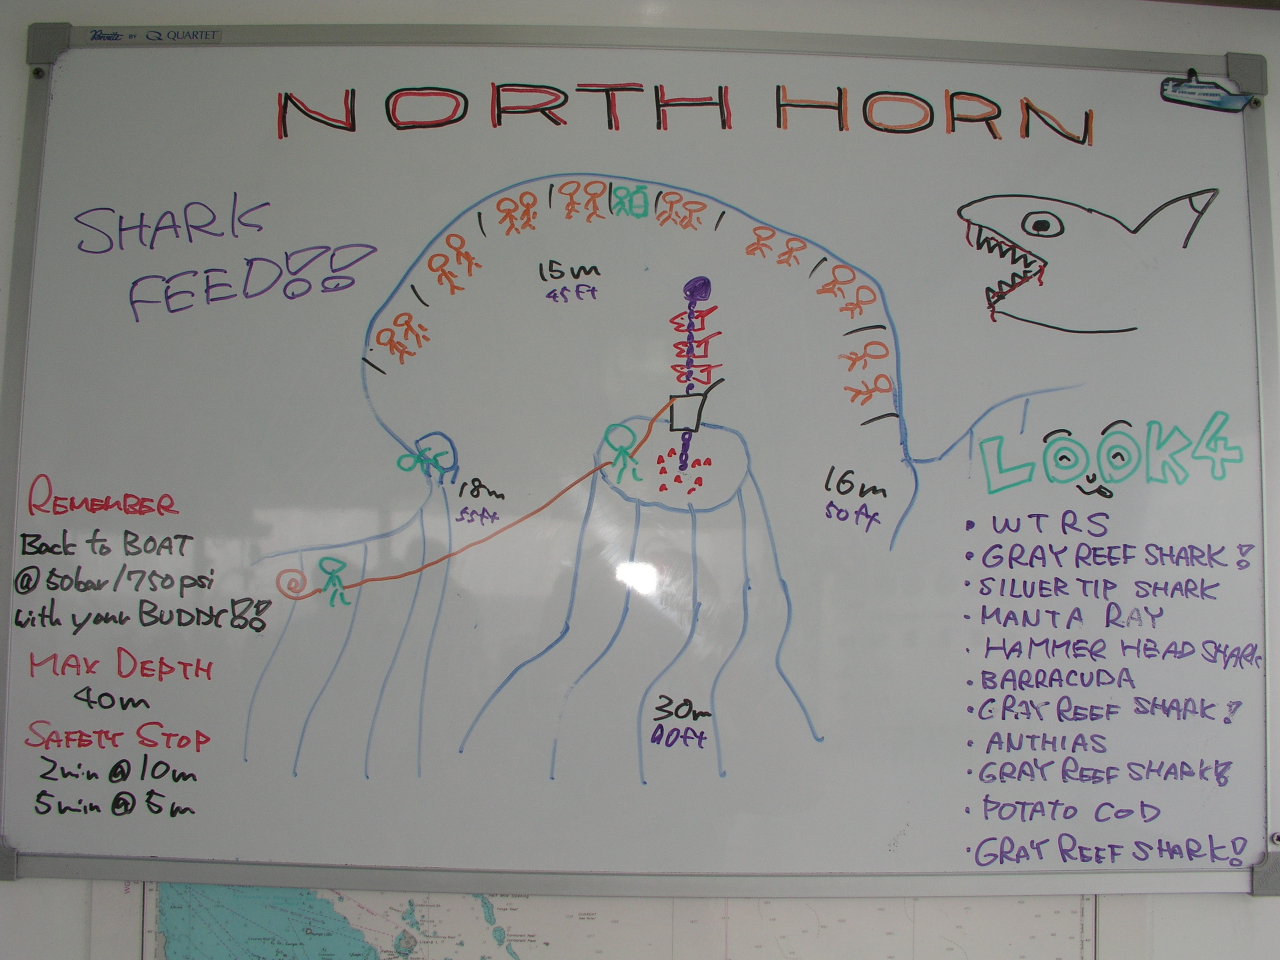 BY QUARTET
NORTH HORN
SHARK
FEED!!
15m
45ft
18m
55ft
16m
50ft
30m
90ft
REMEMBER
Back to BOAT
@ 50bar/750psi
with your BUDDY!!
MAX DEPTH
40m
SAFETY STOP
2min @ 10m
5min @ 5m
LOOK 4
• WTRS
• GRAY REEF SHARK!
• SILVER TIP SHARK
• MANTA RAY
• HAMMER HEAD SHARK
• BARRACUDA
• GRAY REEF SHARK!
• ANTHIAS
• GRAY REEF SHARK!!
• POTATO COD
• GRAY REEF SHARK!